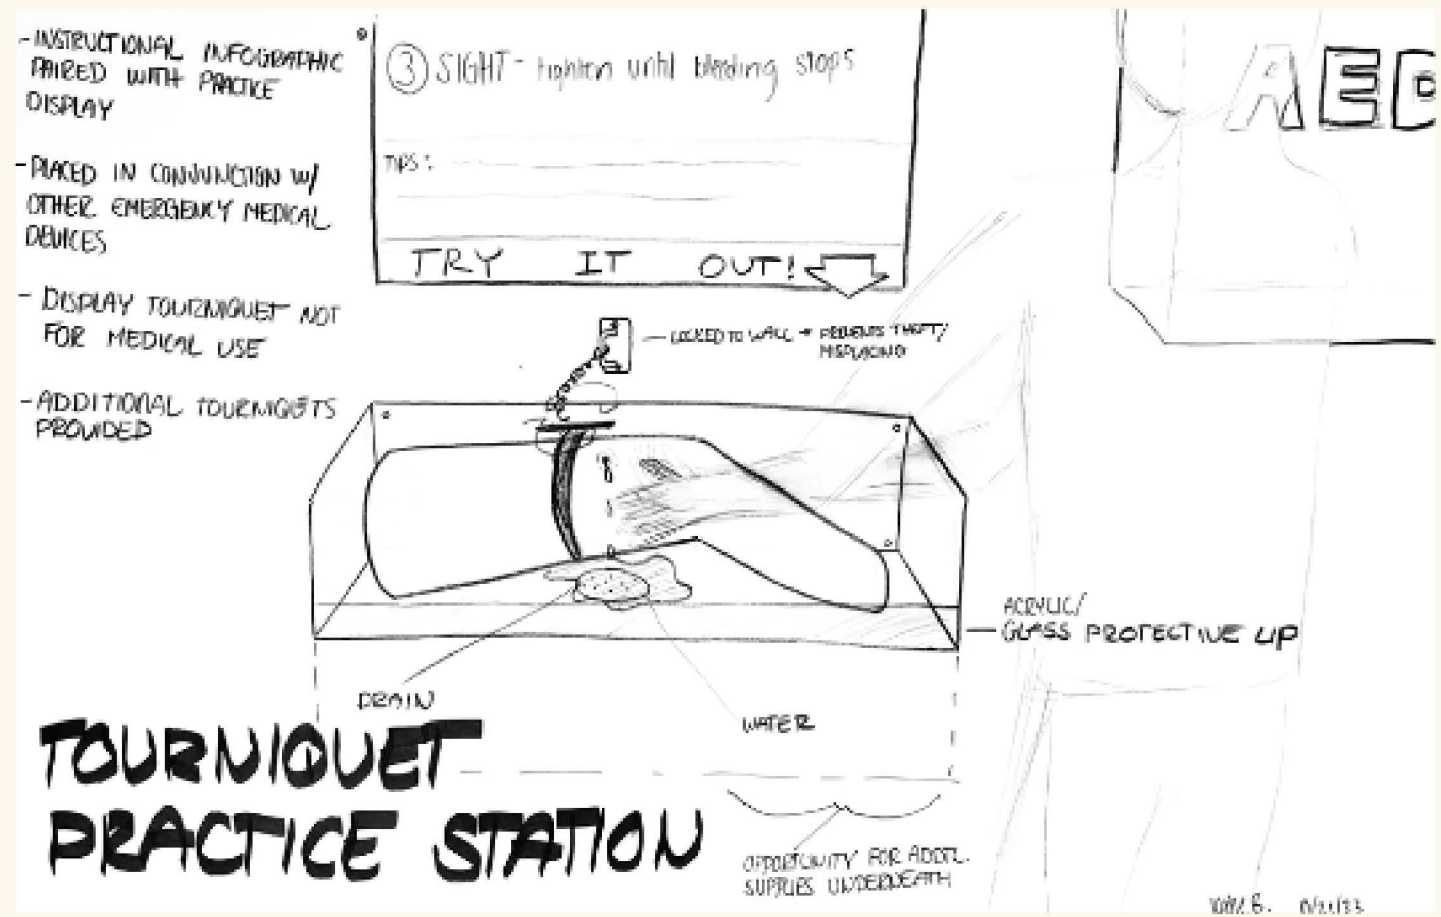 - INSTRUCTIONAL INFOGRAPHIC
PAIRED WITH PRACTICE
DISPLAY
- PLACED IN CONJUNCTION W/
OTHER EMERGENCY MEDICAL
DEVICES
- DISPLAY TOURNIQUET NOT
FOR MEDICAL USE
- ADDITIONAL TOURNIQUETS
PROVIDED
③ SIGHT - tighten until bleeding stops
TIPS:
TRY IT OUT!
AED
LOCKED TO WALL → PREVENTS THEFT/
MISPLACING
ACRYLIC/
GLASS PROTECTIVE LIP
DRAIN
WATER
TOURNIQUET
PRACTICE STATION
OPPORTUNITY FOR ADDTL.
SUPPLIES UNDERNEATH
B.